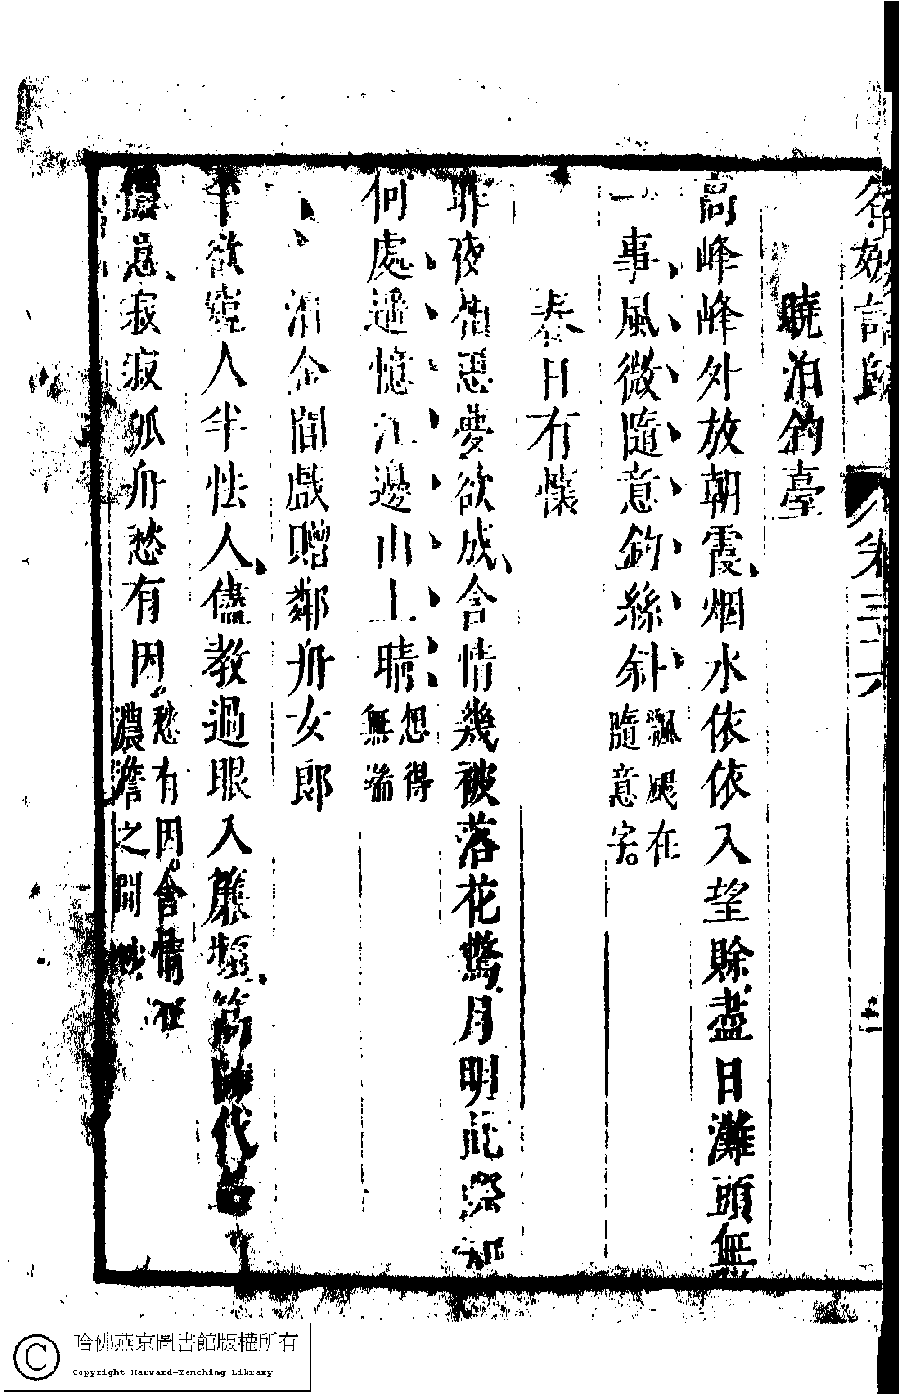 名媛詩歸 卷三十六
曉泊釣臺
高峰峰外放朝霞烟水依依入望賒盡日灘頭無
一事風微隨意釣絲斜飄颺在隨意字
春日有懷
昨夜怕惡夢欲成含情幾被落花驚月明
何處遥憶江邊山上晴想得無端
泊金閶戲贈鄰舟女郎
半欲窺人半怯人儘教過眼入簾 代
寂寂孤舟愁有因愁有因含情 濃澹之間
哈佛燕京圖書館版權所有
Copyright Harvard-Yenching Library